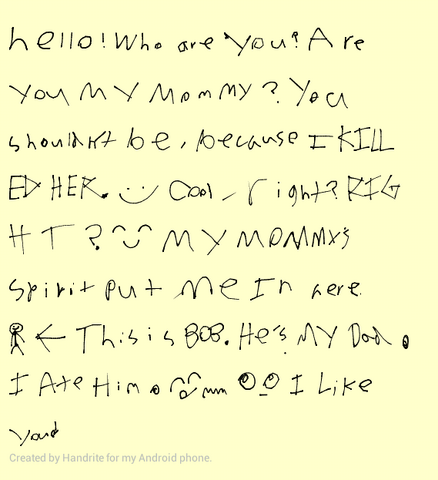 hello! Who are you? Are
you MY Mommy? You
shouldn't be, because I KILL
ED HER. Cool, right? RIG
HT? MY MOMMY'S
Spirit put me In here.
← This is BOB. He's MY Dad.
I Ate Him. mm I Like
Created by Handrite for my Android phone.